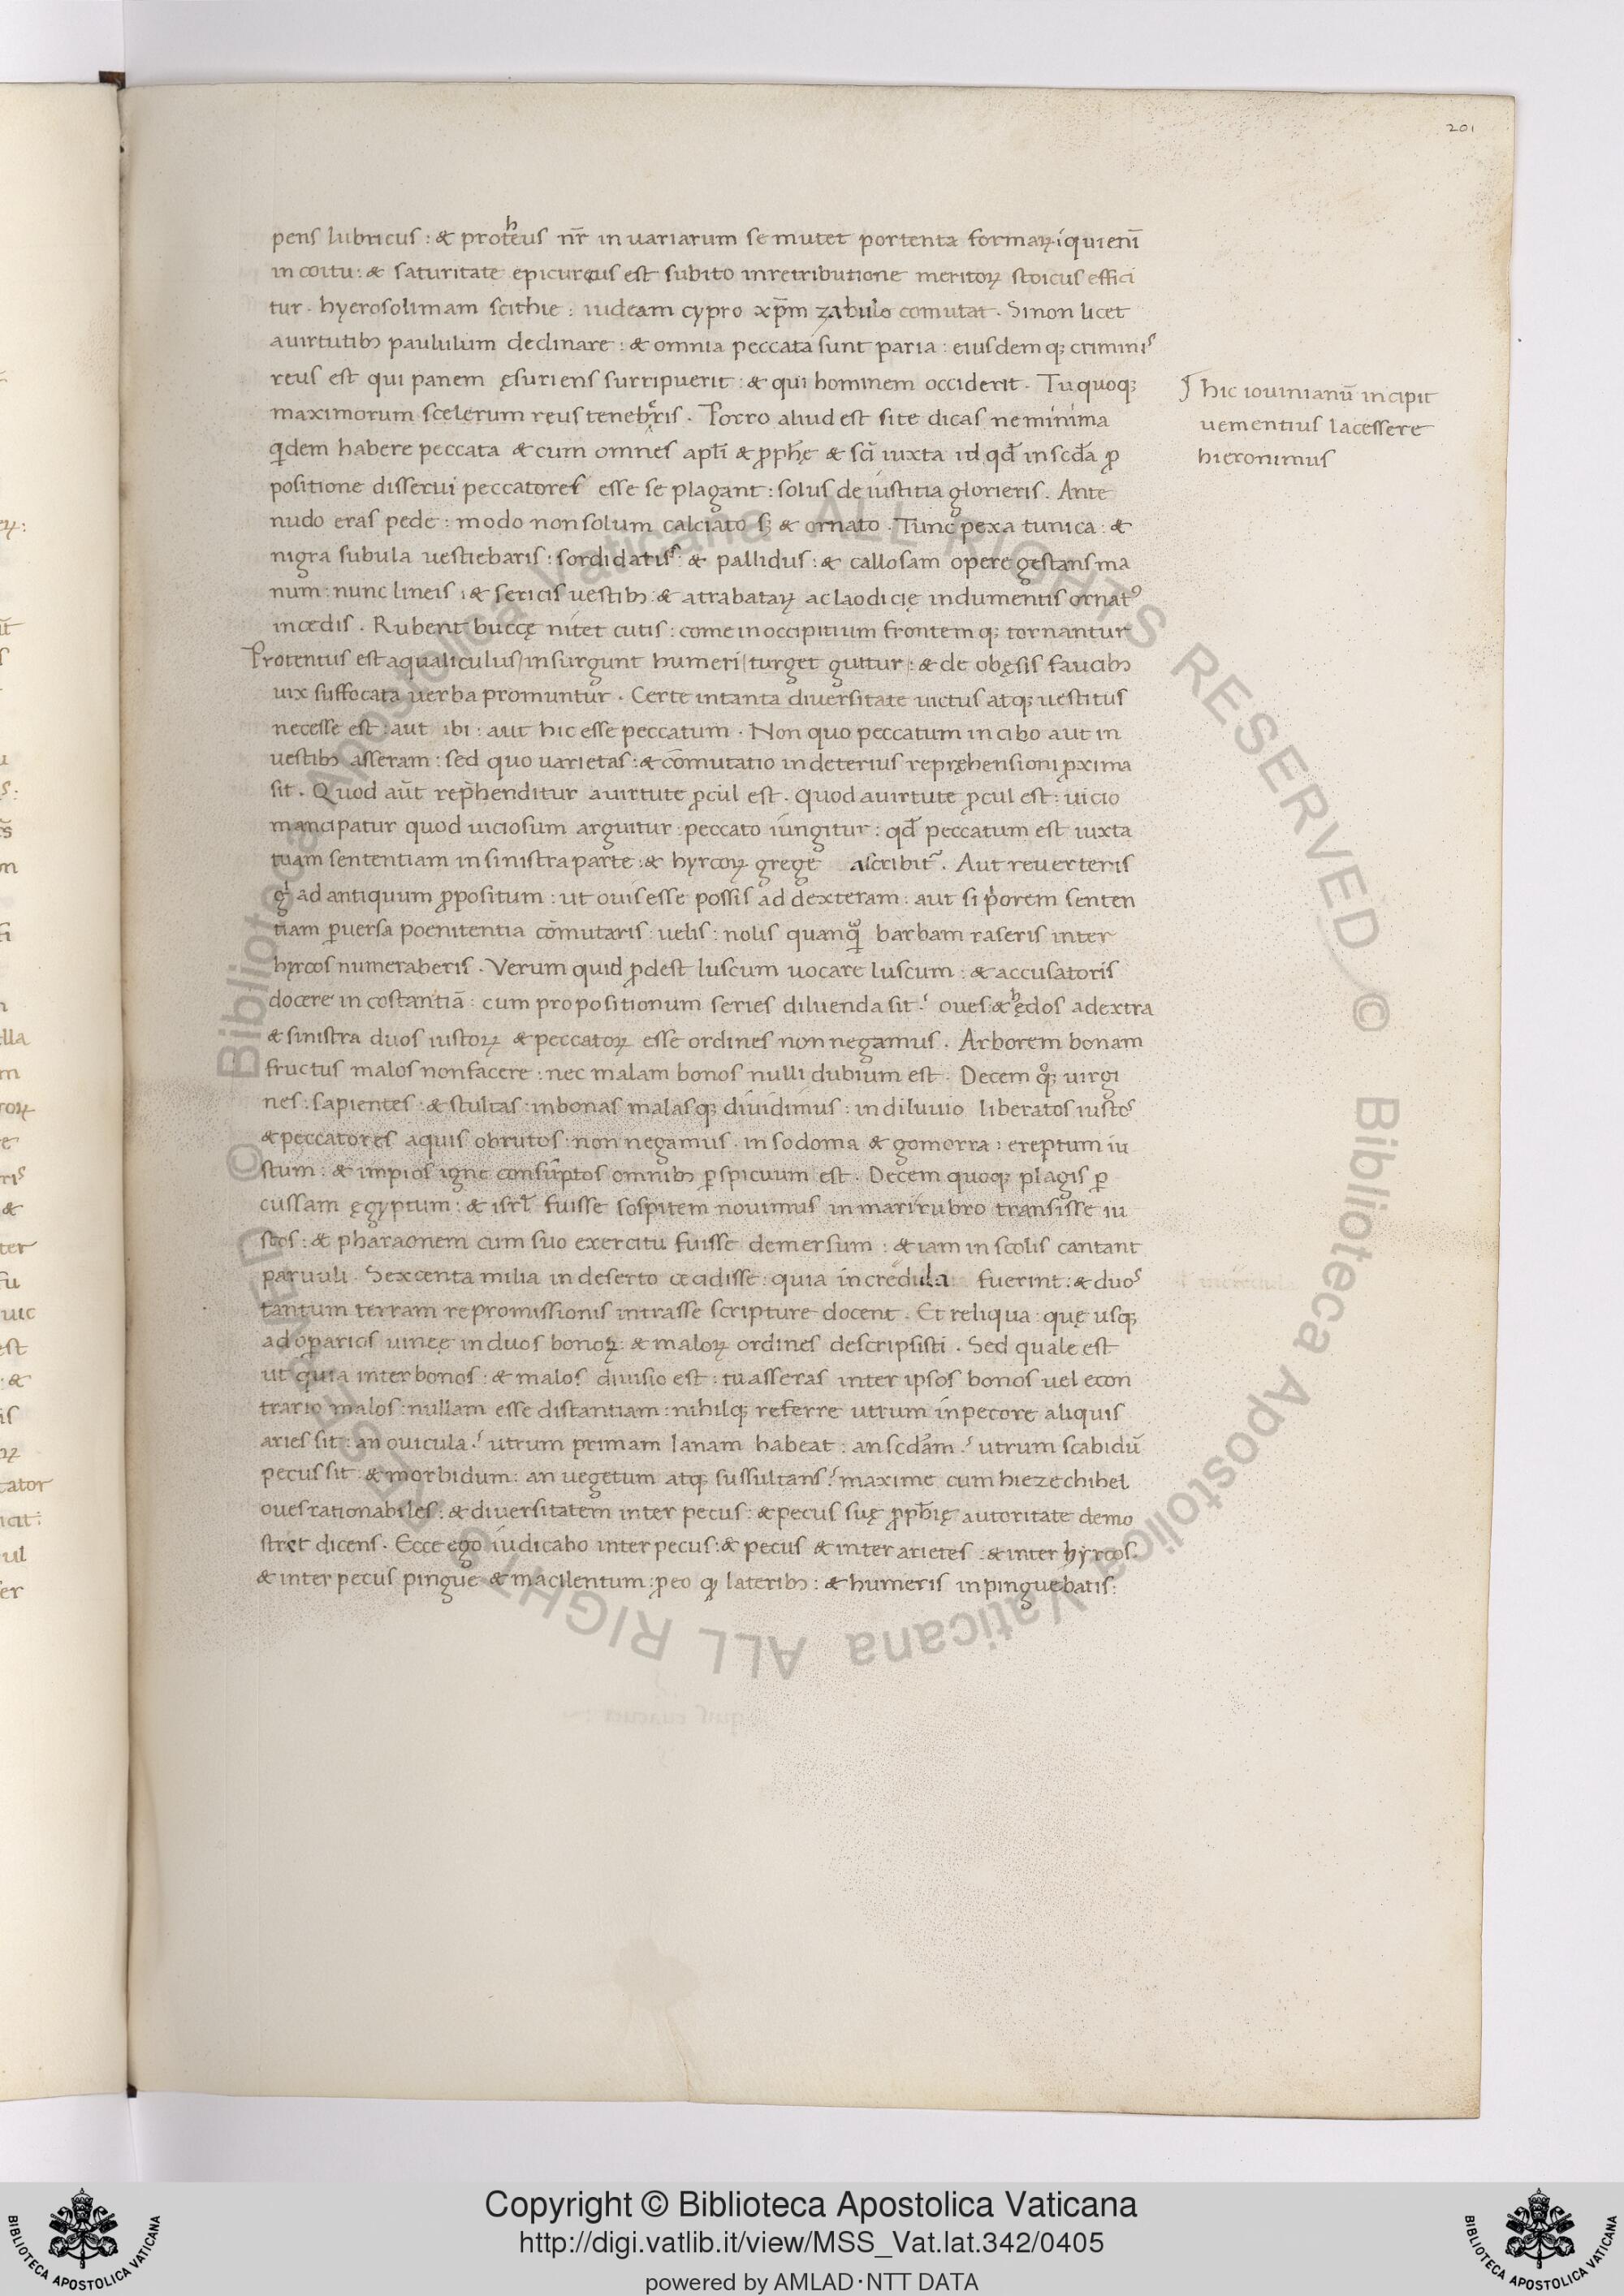 201
pens lubricus : & protheus nr̄ in uariarum se mutet portenta formaꝝ : qui eni̅
in coitu : & saturitate epicureus est subito in retributione meritoꝝ stoicus effici
tur . hyerosolimam scithie : iudeam cypro xp̄m zabulo comutat . Si non licet
a uirtutibꝫ paululum declinare : & omnia peccata sunt paria : eiusdemqꝫ criminis
reus est qui panem ęsuriens surripuerit : & qui hominem occiderit . Tu quoqꝫ
maximorum scelerum reus teneberis . Porro aliud est si te dicas ne minima
qͥdem habere peccata & cum omnes apl̄i & ꝓphe̜ & sc̄i iuxta id qd̄ in scd̄a ꝓ
positione disserui peccatores esse se plagant : solus de iustitia glorieris . Ante
nudo eras pede : modo non solum calciato sꝫ & ornato . Tunc pexa tunica : &
nigra subula uestiebaris : sordidatis & pallidus : & callosam opere gestans ma
num : nunc lineis : & sericis uestibꝫ & atrabataꝝ ac laodicię indumentis ornatꝰ
incedis . Rubent buccę nitet cutis : come in occipitium frontemqꝫ tornantur
Protentus est aqualiculus / insurgunt humeri / turget guttur : & de obęsis faucibꝫ
uix suffocata uerba promuntur . Certe in tanta diuersitate uictus atqꝫ uestitus
necesse est : aut ibi : aut hic esse peccatum . Non quo peccatum in cibo aut in
uestibꝫ asseram : sed quo uarietas : & co̅mutatio in deterius repręhensioni ꝓxima
sit . Quod aūt rep̄henditur a uirtute ꝓcul est . Quod a uirtute ꝓcul est : uicio
mancipatur quod uiciosum arguitur : peccato iungitur : qd̄ peccatum est iuxta
tuam sententiam in sinistra parte : & hyrcoꝝ grege ascribit᷑ . Aut reuerteris
gͥ ad antiquum ꝓpositum : ut ouis esse possis ad dexteram : aut si pͥorem senten
tiam ꝑuersa poenitentia co̅mutaris : uelis : nolis quanqͣ barbam raseris inter
hyrcos numeraberis . Verum quid ꝓdest luscum uocare luscum : & accusatoris
docere in costantiā : cum propositionum series diluenda sit . oues & hędos a dextra
& sinistra duos iustoꝝ & peccatoꝝ esse ordines non negamus . Arborem bonam
fructus malos non facere : nec malam bonos nulli dubium est . Decem qͦqꝫ uirgi
nes . sapientes : & stultas : in bonas malasqꝫ diuidimus : in diluuio liberatos iustos
& peccatores aquis obrutos : non negamus . in sodoma & gomorra : ereptum iu
stum : & impios igne consumptos omnibꝫ ꝑspicuum est . Decem quoqꝫ plagis ꝑ
cussam ęgyptum : & isrl̄ fuisse sospitem nouimus in mari rubro transisse iu
stos : & pharaonem cum suo exercitu fuisse demersum : & iam in scolis cantant
paruuli . Sexcenta milia in deserto cecidisse : quia incredula fuerint : & duos
tantum terram repromissionis intrasse scripture docent . Et reliqua : quę usqꝫ
ad oꝑarios uineę in duos bonoꝝ : & maloꝝ ordines descripsisti . Sed quale est
ut quia inter bonos : & malos diuisio est : tu asseras inter ipsos bonos uel econ
trario malos : nullam esse distantiam : nihilqꝫ referre utrum in pecore aliquis
aries sit : an ouicula . utrum primam lanam habeat : an scd̄am . utrum scabidū
pecus sit & morbidum : an uegetum atqꝫ sussultans . maxime cum hiezechihel
oues rationabiles : & diuersitatem inter pecus : & pecus suę ꝓph̄ię autoritate demo
stret dicens . Ecce ego iudicabo inter pecus : & pecus & inter arietes : & inter hyrcos .
& inter pecus pingue & macilentum : ꝓ eo qͥ lateribꝫ : & humeris inpinguebatis :
hic iouinianū incipit
uementius lacessere
hieronimus
© Biblioteca Apostolica Vaticana ALL RIGHTS RESERVED © Biblioteca Apostolica Vaticana ALL RIGHTS RESERVED
Copyright © Biblioteca Apostolica Vaticana
http://digi.vatlib.it/view/MSS_Vat.lat.342/0405
powered by AMLAD·NTT DATA
BIBLIOTECA APOSTOLICA VATICANA
BIBLIOTECA APOSTOLICA VATICANA